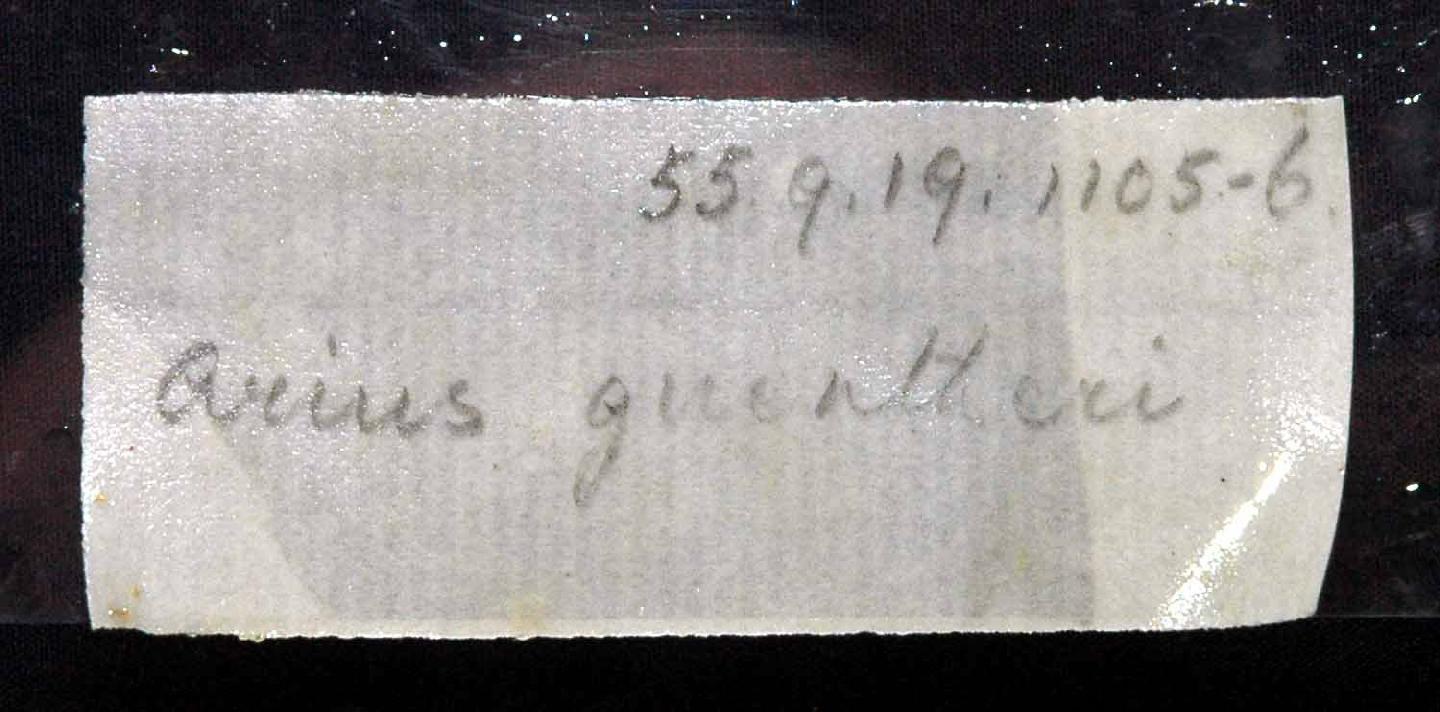 55.9.19.1105-6.
Arius guentheri